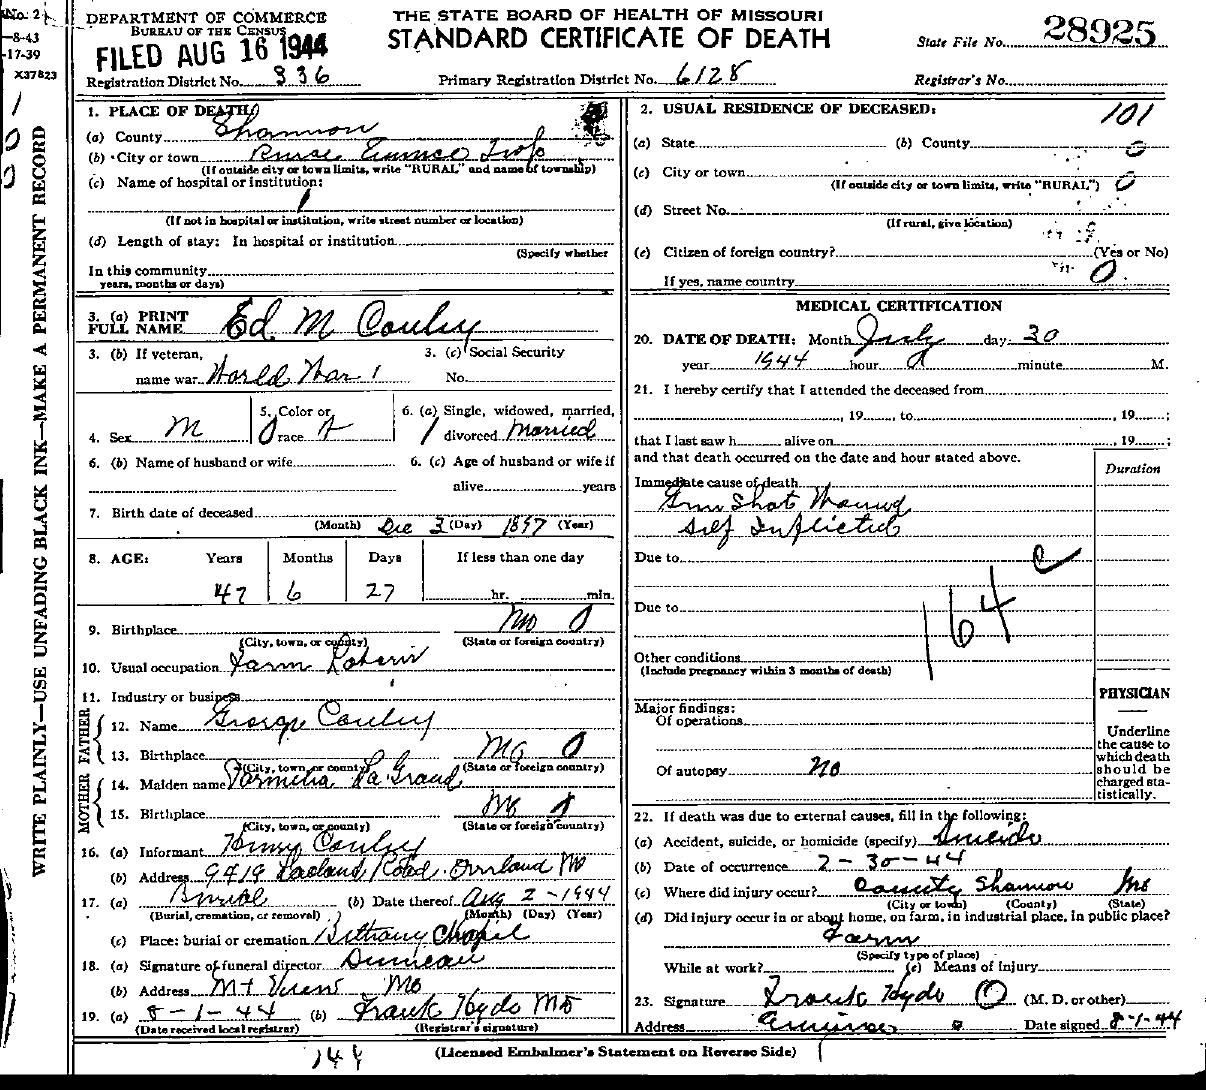 No. 2
-8-43
-17-39
X37823
DEPARTMENT OF COMMERCE
BUREAU OF THE CENSUS
FILED AUG 16 1944
THE STATE BOARD OF HEALTH OF MISSOURI
STANDARD CERTIFICATE OF DEATH
State File No. 28925
Registration District No. 336
Primary Registration District No. 6128
Registrar's No.
WRITE PLAINLY—USE UNFADING BLACK INK—MAKE A PERMANENT RECORD
1. PLACE OF DEATH:
(a) County Shannon
(b) City or town
(If outside city or town limits, write "RURAL" and name of township)
(c) Name of hospital or institution:
(If not in hospital or institution, write street number or location)
(d) Length of stay: In hospital or institution
(Specify whether
In this community
years, months or days)
3. (a) PRINT
FULL NAME Ed M
3. (b) If veteran,
name war World War 1
3. (c) Social Security
No.
4. Sex M
5. Color or
race
6. (a) Single, widowed, married,
divorced Married
6. (b) Name of husband or wife
6. (c) Age of husband or wife if
alive years
7. Birth date of deceased
(Month) Dec 3 (Day) 1897 (Year)
8. AGE: Years Months Days If less than one day
47 6 27 hr. min.
9. Birthplace Mo 0
(City, town, or county) (State or foreign country)
10. Usual occupation Farm
11. Industry or business
FATHER
12. Name George
13. Birthplace Mo 0
(City, town, or county) (State or foreign country)
MOTHER
14. Maiden name
15. Birthplace Mo
(City, town, or county) (State or foreign country)
16. (a) Informant
(b) Address 9419 Mo
17. (a) Burial (b) Date thereof Aug 2-1944
(Burial, cremation, or removal) (Month) (Day) (Year)
(c) Place: burial or cremation Bethany Chapel
18. (a) Signature of funeral director Duncan
(b) Address Mt Mo
19. (a) 8-1-44 (b) Frank Hyde
(Date received local registrar) (Registrar's signature)
144
2. USUAL RESIDENCE OF DECEASED:
101
(a) State (b) County 0
(c) City or town
(If outside city or town limits, write "RURAL") 0
(d) Street No.
(If rural, give location)
(e) Citizen of foreign country? (Yes or No)
If yes, name country 0
MEDICAL CERTIFICATION
20. DATE OF DEATH: Month July day 30
year 1944 hour minute M.
21. I hereby certify that I attended the deceased from
, 19 , to , 19 ;
that I last saw h alive on , 19 ;
and that death occurred on the date and hour stated above.
Duration
Immediate cause of death
Gun Shot Wound
Self Inflicted
Due to
Due to
164 c
Other conditions
(Include pregnancy within 3 months of death)
Major findings:
Of operations
Of autopsy no
PHYSICIAN
Underline
the cause to
which death
should be
charged sta-
tistically.
22. If death was due to external causes, fill in the following:
(a) Accident, suicide, or homicide (specify) Suicide
(b) Date of occurrence 2-30-44
(c) Where did injury occur? County Shannon Mo
(City or town) (County) (State)
(d) Did injury occur in or about home, on farm, in industrial place, in public place?
Farm
(Specify type of place)
While at work? (e) Means of injury
23. Signature Frank Hyde (M. D. or other)
Address Date signed 8-1-44
(Licensed Embalmer's Statement on Reverse Side)